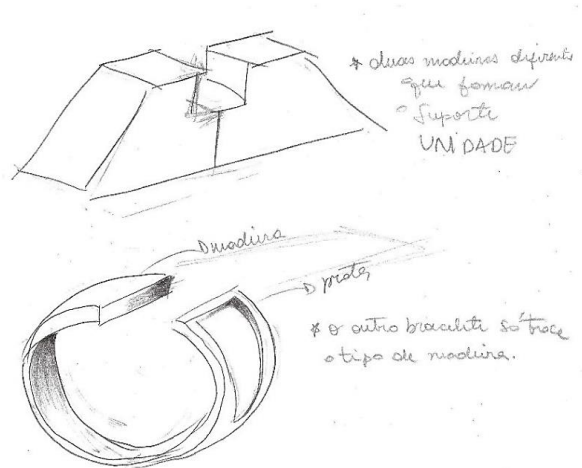 * duas madeiras diferente
que formam
o suporte
UNIDADE
madeira
prata
* o outro bracelete só troca
o tipo de madeira.